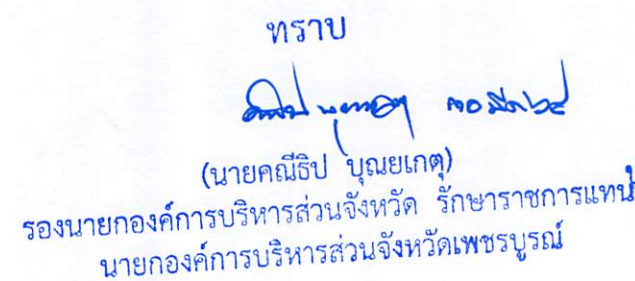 ทราบ
(นายคณีธิป บุณยเกตุ)
รองนายกองค์การบริหารส่วนจังหวัด รักษาราชการแทน
นายกองค์การบริหารส่วนจังหวัดเพชรบูรณ์